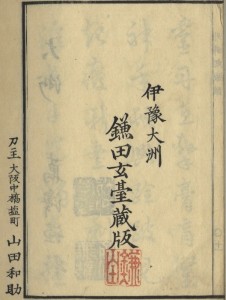 伊豫大洲
鎌田玄臺藏版
鎌田
刀工 大阪中橋塩町 山田和助